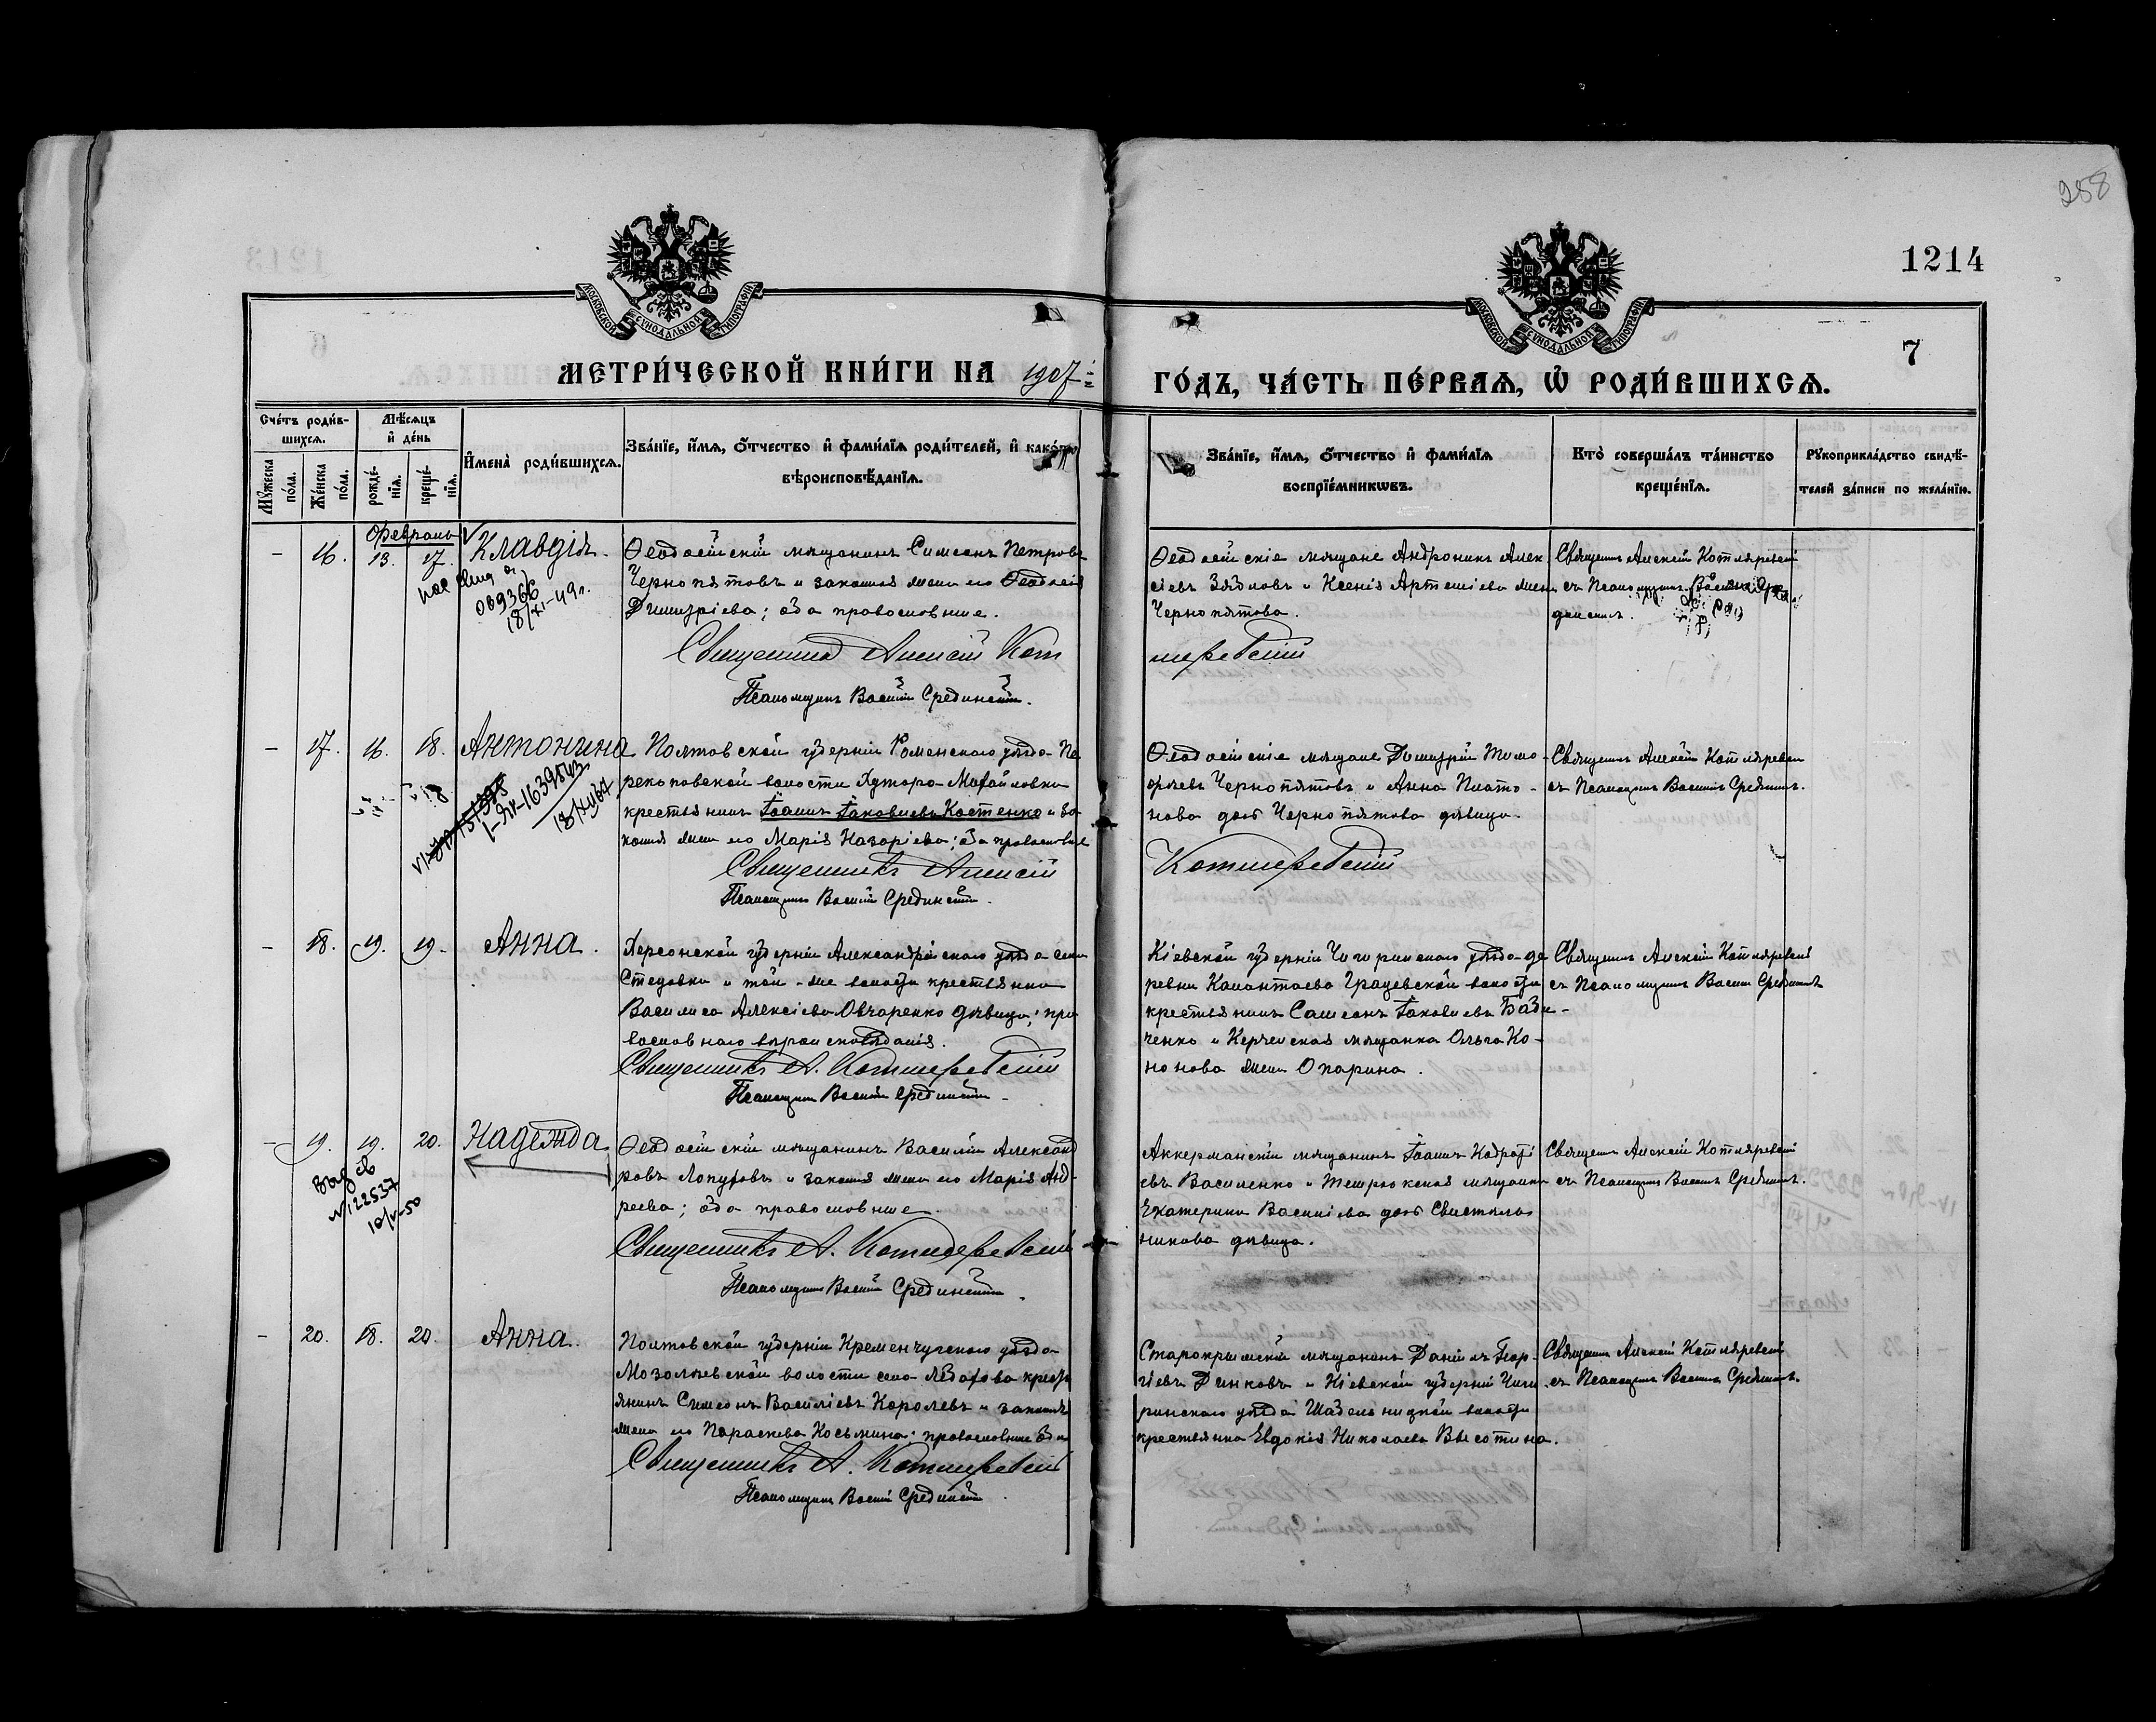 258
1214
7
МОСКОВСКОЙ СѴНОДАЛЬНОЙ ТИПОГРАФІИ
МОСКОВСКОЙ СѴНОДАЛЬНОЙ ТИПОГРАФІИ
МЕТРИ́ЧЕСКОЙ КНИ́ГИ НА 1907
ГО́ДЪ, ЧА́СТЬ ПЕ́РВАѦ, Ѡ҆ РОДИ́ВШИХСѦ.
Сче́тъ роди́в-
шихсѧ.
Мꙋ́жеска по́ла.
Же́нска по́ла.
Мѣ́сѧцъ и҆ де́нь
рожде́-нїѧ.
креще́-нїѧ.
И҆мена̀ роди́вшихсѧ.
Зва́нїе, и҆́мѧ, ѻ҆́тчество и҆ фами́лїѧ роди́телей, и҆
вѣроисповѣ́данїѧ.
Зва́нїе, и҆́мѧ, ѻ҆́тчество и҆ фами́лїѧ
воспрїе́мникѡвъ.
Кто̀ соверша́лъ та́инство
креще́нїѧ.
Рꙋкоприкла́дство свидѣ́-
телей за́писи по жела́нїю.
Февраль
- 16. 13. 17. Клавдія.
069366
18/XI-49г.
Ѳеодосійскій мѣщанинъ Симеонъ Петровъ
Чернопятовъ и законная жена его Ѳеодосія
Димитріева; оба православные.
Священникъ Алексій Кот
ляревскій
Псаломщикъ Василій Срединскій.
Ѳеодосійскіе мѣщане Андроникъ Алек
сіевъ и Ксенія Артеміева жена
Чернопятова.
Священникъ Алексій Котляревскій
съ Псаломщикомъ Василіемъ
- 17. 16. 18. Антонина
1639843
18/XI/67
Полтавской губерніи Роменскаго уѣзда Пе
рекоповской волости Хутора Михайловки
крестьянинъ Іоаннъ Іаковлевъ Костенко и за
конная жена его Марія Назаріева; оба православные
Священникъ Алексій
Котляревскій
Псаломщикъ Василій Срединскій.
Ѳеодосійскіе мѣщане Димитрій Тимо-
ѳеевъ Чернопятовъ и Анна Плато-
нова дочь Чернопятова дѣвица.
Священникъ Алексій Котляревскій
съ Псаломщикомъ Василіемъ Срединскимъ.
- 18. 19. 19. Анна.
Херсонской губерніи Александрійскаго уѣзда села
и той-же волости крестьянка
Василиса Алексіева Овчаренко дѣвица; пра
вославнаго вѣроисповѣданія.
Священникъ А. Котляревскій
Псаломщикъ Василій Срединскій
Кіевской губерніи Чигиринскаго уѣзда де
ревни Калантаева волости
крестьянинъ Самсонъ Іаковлевъ
ченко и Керченская мѣщанка Ольга Ко-
нонова жена Опарина.
Священникъ Алексій Котляревскій
съ Псаломщикомъ Василіемъ Срединскимъ
- 19. 19. 20. Надежда
№122537
10/V-50
Ѳеодосійскій мѣщанинъ Василій Александ
ровъ Лопуховъ и законная жена его Марія Анд-
реева; оба православные.
Священникъ А. Котляревскій
Псаломщикъ Василій Срединскій.
Аккерманскій мѣщанинъ Іоаннъ
евъ Василенко и Темрюкская мѣщанка
Екатерина Василіева дочь Свистель
никова дѣвица.
Священникъ Алексій Котляревскій
съ Псаломщикомъ Василіемъ Срединскимъ.
- 20. 18. 20. Анна.
Полтавской губерніи Кременчугскаго уѣзда
Мозолѣевской волости села кресть
янинъ Симеонъ Василіевъ Королевъ и законная
жена его Параскева Косьмина; православные оба
Священникъ А. Котляревскій
Псаломщикъ Василій Срединскій.
Старокрымскій мѣщанинъ Даніилъ Геор-
гіевъ Динковъ и Кіевской губерніи Чиги
ринскаго уѣзда волости
крестьянка Евдокія Николаева Высотина.
Священникъ Алексій Котляревскій
съ Псаломщикомъ Василіемъ Срединскимъ.